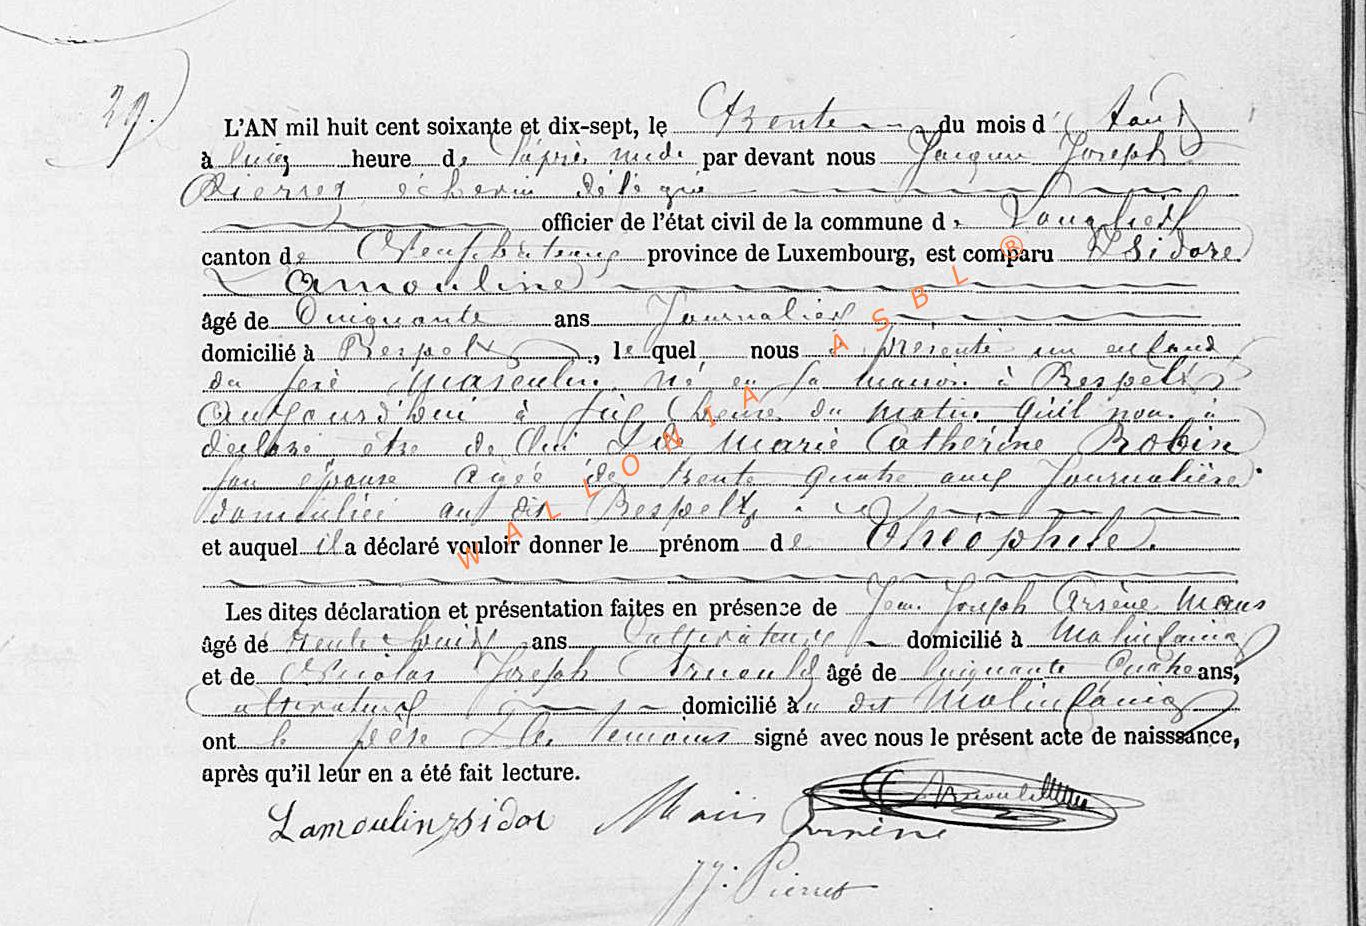 29.
L'AN mil huit cent soixante et dix-sept, le Trente du mois d' Août
à cinq heure de l'après midi par devant nous Jacques Joseph
Pierret échevin délégué
officier de l'état civil de la commune de Longlier
canton de Neufchâteau province de Luxembourg, est comparu Isidore
Lamouline
âgé de Cinquante ans Journalier
domicilié à Respelt, lequel nous a présenté un enfant
du sexe Masculin, né en sa maison à Respelt
aujourd'hui à six heure du matin qu'il nous a
déclaré être de lui & de Marie Catherine Robin
son épouse agée de trente quatre ans Journalière
domiciliée au dit Respelt
et auquel il a déclaré vouloir donner le prénom de Théophile.
Les dites déclaration et présentation faites en présence de Jean Joseph Arsène Maus
âgé de trente ans cultivateur domicilié à Molinfaing
et de Nicolas Joseph Arnould âgé de cinquante quatre ans,
cultivateur domicilié au dit Molinfaing
ont le père & les témoins signé avec nous le présent acte de naisssance,
après qu'il leur en a été fait lecture.
Lamoulin Isidor Arsène
JJ. Pierret
WALLONIA ASBL ®